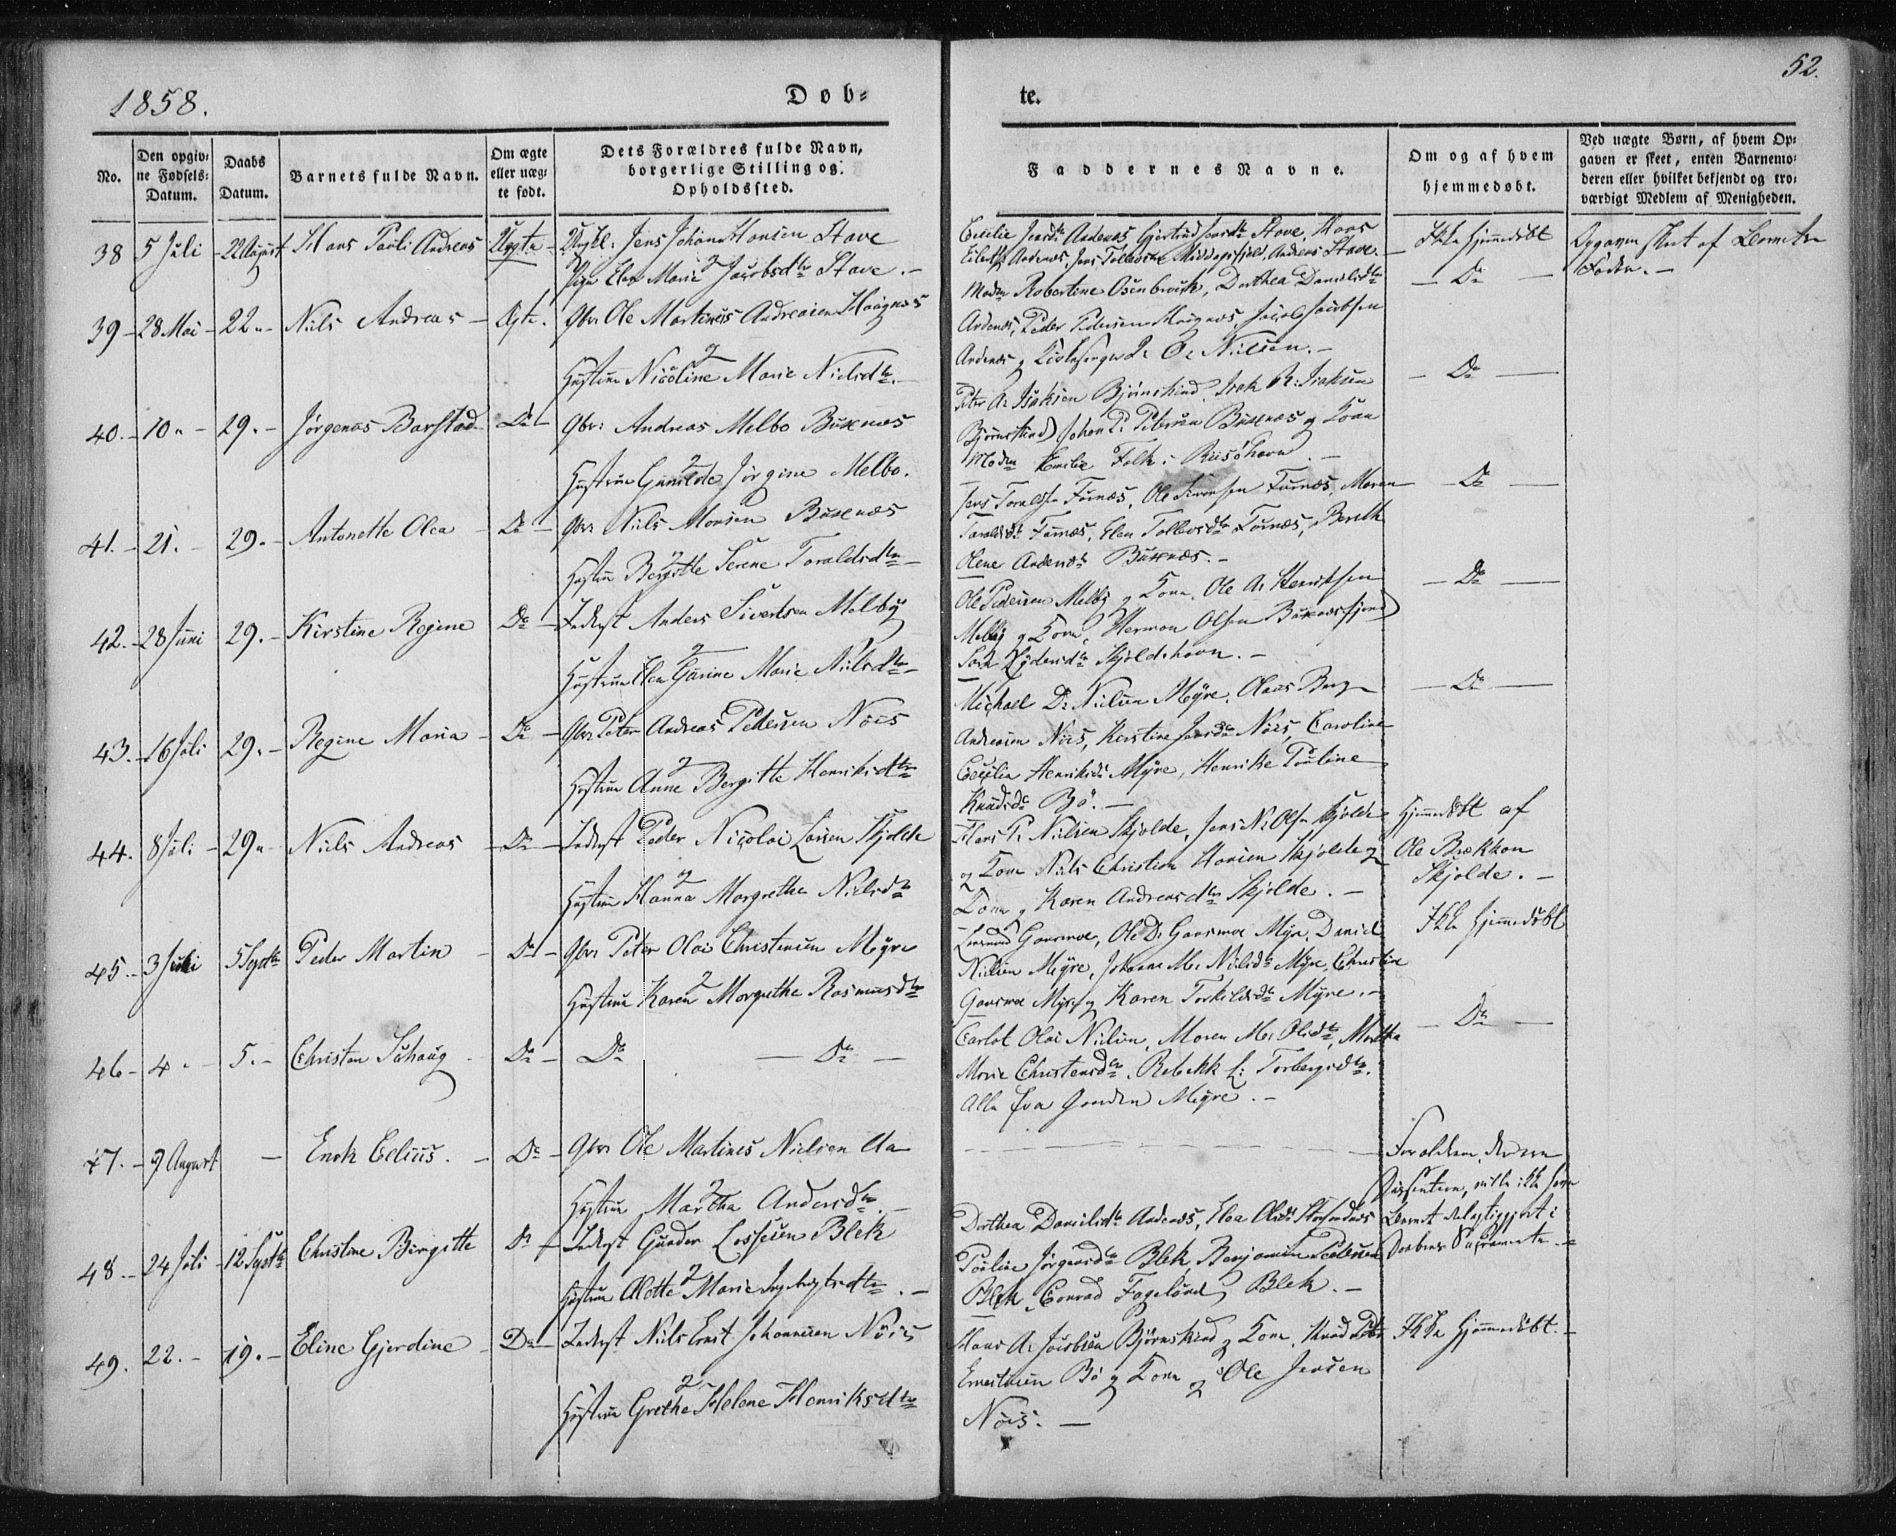 1858.
Døb-
te.
52.
No.
Den opgiv-
ne Fødsels-
Datum.
Daabs
Datum.
Barnets fulde Navn.
Om ægte
eller uæg-
te født.
Dets Forældres fulde Navn,
borgerlige Stilling og
Opholdssted.
Faddernes Navne.
Om og af hvem
hjemmedøbt.
Ved uægte Børn, af hvem Op-
gaven er skeet, enten Barnemo-
deren eller hvilket bekjendt og tro-
værdigt Medlem af Menigheden.
38 5 Juli - 22 August Hans Pauli Andreas Uægte Ungkl. Jens Johan Hansen Stave
og
Pige Elen Marie Jacobsdtr Stave. -
Cecilie Andenes Gjertrud Stave, Hans
Andenes, Jens Middagsfjeld, Andreas Stave. -
Ikke hjemmedøbt
Opgaven skeet af Barnets
Fader. -
39 - 28 Mai - 22 - Niels Andreas - Ægte. Gbr. Ole Martinus Andreasen Haugnes
og
Hustrue Nicoline Marie Nielsdtr. -
Madm Robertine Osenbroch, Dorthea Danielsdtr
Andenes, Peder Pedersen Haugnes, Jacob Jacobsen
Andenes og Kirkesanger P. O. Nielsen. -
- Do -
40. - 10 - 29. - Jørgenas Barstad Do - Gbr: Andreas Melbo Buxnæs
og
Hustrue Gunilde Jørgine Melbo.
Peter A. Isaksen Bjørnskind, Isak R: Isaksen
Bjørnskind, Johan P. Petersen Buxnæs og Kone
Madm Emilie Falk, Risøhavn. -
- Do -
41. - 21. - 29. - Antonette Olea - Do - Gbr: Niels Monsen Buxnæs
og
Hustru Bergitte Serene Toraldsdtr -
Jens Toraldsen Furnæs, Ole Sivertsen Furnæs, Maren
Toraldsdtr Furnæs, Elen Furnæs, Bereth
Olene Andersdtr Buxnæs. -
- Do -
42. - 28 Juni 29. - Kirstine Regine Do - Inderst Anders Sivertsen Melby
og
Hustrue Elen Marie Nielsdtr -
Ole Pedersen Melby og Kone, Ole A. Henriksen
Melby og Kone, Herman Olsen Buxnæsfjord
Skjoldehavn. -
- Do -
43. - 16 Juli 29. - Regine Maria - Do - Gbr: Peter Andreas Pedersen Nøis
og
Hustrue Anne Bergitte Henriksdtr
Michael D. Nielsen Myre, Claus Berg
Andreasen Nøis, Kerstine Nøis, Caroline
Cecilia Henriksdtr Myre, Henrike Pouline
Knudsdtr Bø. -
- Do -
44. 8 Juli - 29 - Niels Andreas - Do - Inderst Peder Nicolai Larsen Skjolde
og
Hustrue Hanna Margrethe Nielsdtr
Hans P. Nielsen Skjolde, Jens N. Olsen Skjolde
og Kone Niels Christian Hansen Skjolde og
Kone og Karen Andreasdtr Skjolde. -
Hjemmedøbt af
Ole Brækkan
Skjolde. -
45. - 3 Juli 5 Septbr Peder Martin - Do - Gbr: Peter Olai Christensen Myre
og
Hustrue Karen Margrethe Rasmusdtr
Gansmoe, Ole D. Gansmoe Myre, Daniel
Nielsen Myre, Johanna M. Nielsdtr Myre, Christine
Gansmoe Myre og Karen Torkildsdtr Myre. -
Ikke hjemmedøbt
46 - 4 - 5. - Christen Schaug - Do - Do - Do -
Carlot Olai Nielsen, Maren M. Olsdtr, Martha
Marie Christensdtr, Rebekk L: Torbergsdtr.
Alle fra Gaarden Myre. -
- Do -
47. - 9 August - Enok Elius. - Do - Gbr: Ole Martines Nielsen Aa
og
Hustrue Martha Andersdtr. -
Forældrene, der ere
Dissentere, ville ikke have
Barnet delagtiggjort i
Daabens Sakramente. -
48 - 24 Juli - 12 Septbr Christine Birgitte Do - Inderst Gunder Blek
og
Hustrue Olotte Marie -
Dorthea Danielsdtr Andenes, Elea
Pouline Jørgensdtr Blek, Benjamin Pedersen
Blek, Conrad Fagelund Blek. -
49. 22. - 19. - Eline Gjerdine - Do - Inderst Niels Ernst Johannesen Nøis
og
Hustrue Grethe Helene Henriksdtr
Hans A. Jacobsen Bjørnskind og Kone, Knud Peter
Ernestusen Bø og Kone og Ole Jensen
Nøis. -
Ikke Hjemmedøbt. -